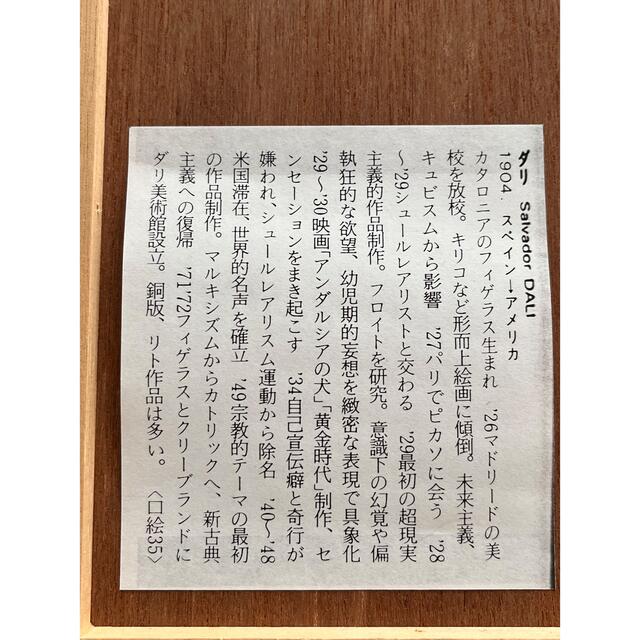 ダリ Salvador DALI
1904. スペイン→アメリカ
カタロニアのフィゲラス生まれ '26マドリードの美
校を放校。キリコなど形而上絵画に傾倒。未来主義、
キュビスムから影響 '27パリでピカソに会う '28
〜'29シュールレアリストと交わる '29最初の超現実
主義的作品制作。フロイトを研究。意識下の幻覚や偏
執狂的な欲望、幼児期的妄想を緻密な表現で具象化
'29〜'30映画「アンダルシアの犬」「黄金時代」制作、セ
ンセーションをまき起こす '34自己宣伝癖と奇行が
嫌われ、シュールレアリスム運動から除名 '40〜'48
米国滞在、世界的名声を確立 '49宗教的テーマの最初
の作品制作。マルキシズムからカトリックへ、新古典
主義への復帰 '71'72フィゲラスとクリーブランドに
ダリ美術館設立。銅版、リト作品は多い。〈口絵35〉